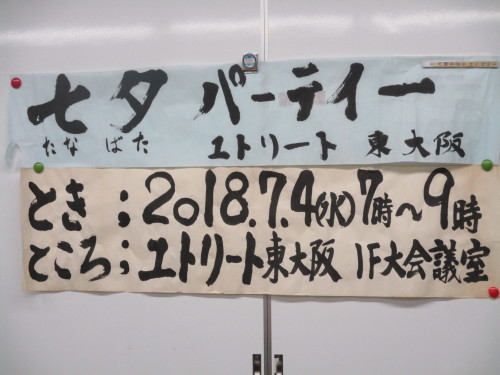 七夕 パーティー
たな ばた ユトリート 東大阪
とき；2018.7.4(水)7時〜9時
ところ；ユトリート東大阪 1F大会議室